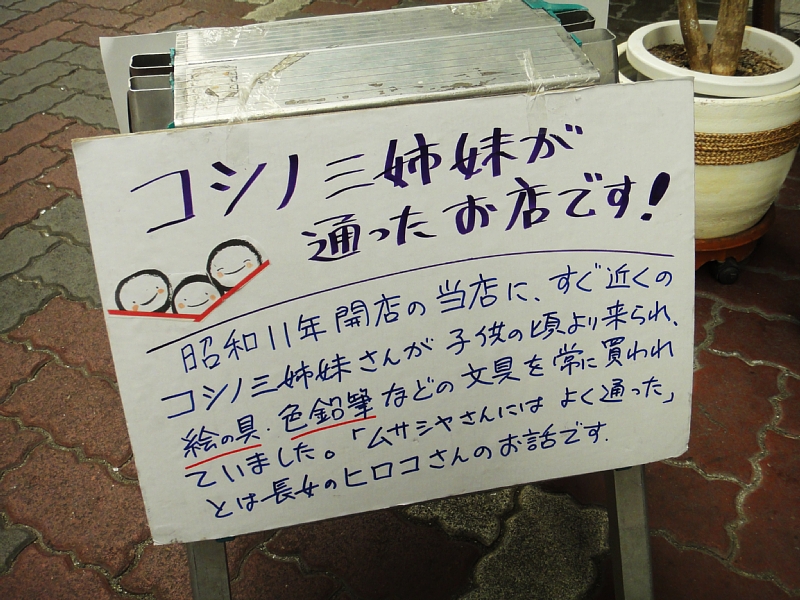 コシノ三姉妹が
通ったお店です!
昭和11年開店の当店に、すぐ近くの
コシノ三姉妹さんが子供の頃より来られ、
絵の具・色鉛筆などの文具を常に買われ
ていました。「ムサシヤさんにはよく通った」
とは長女のヒロコさんのお話です.